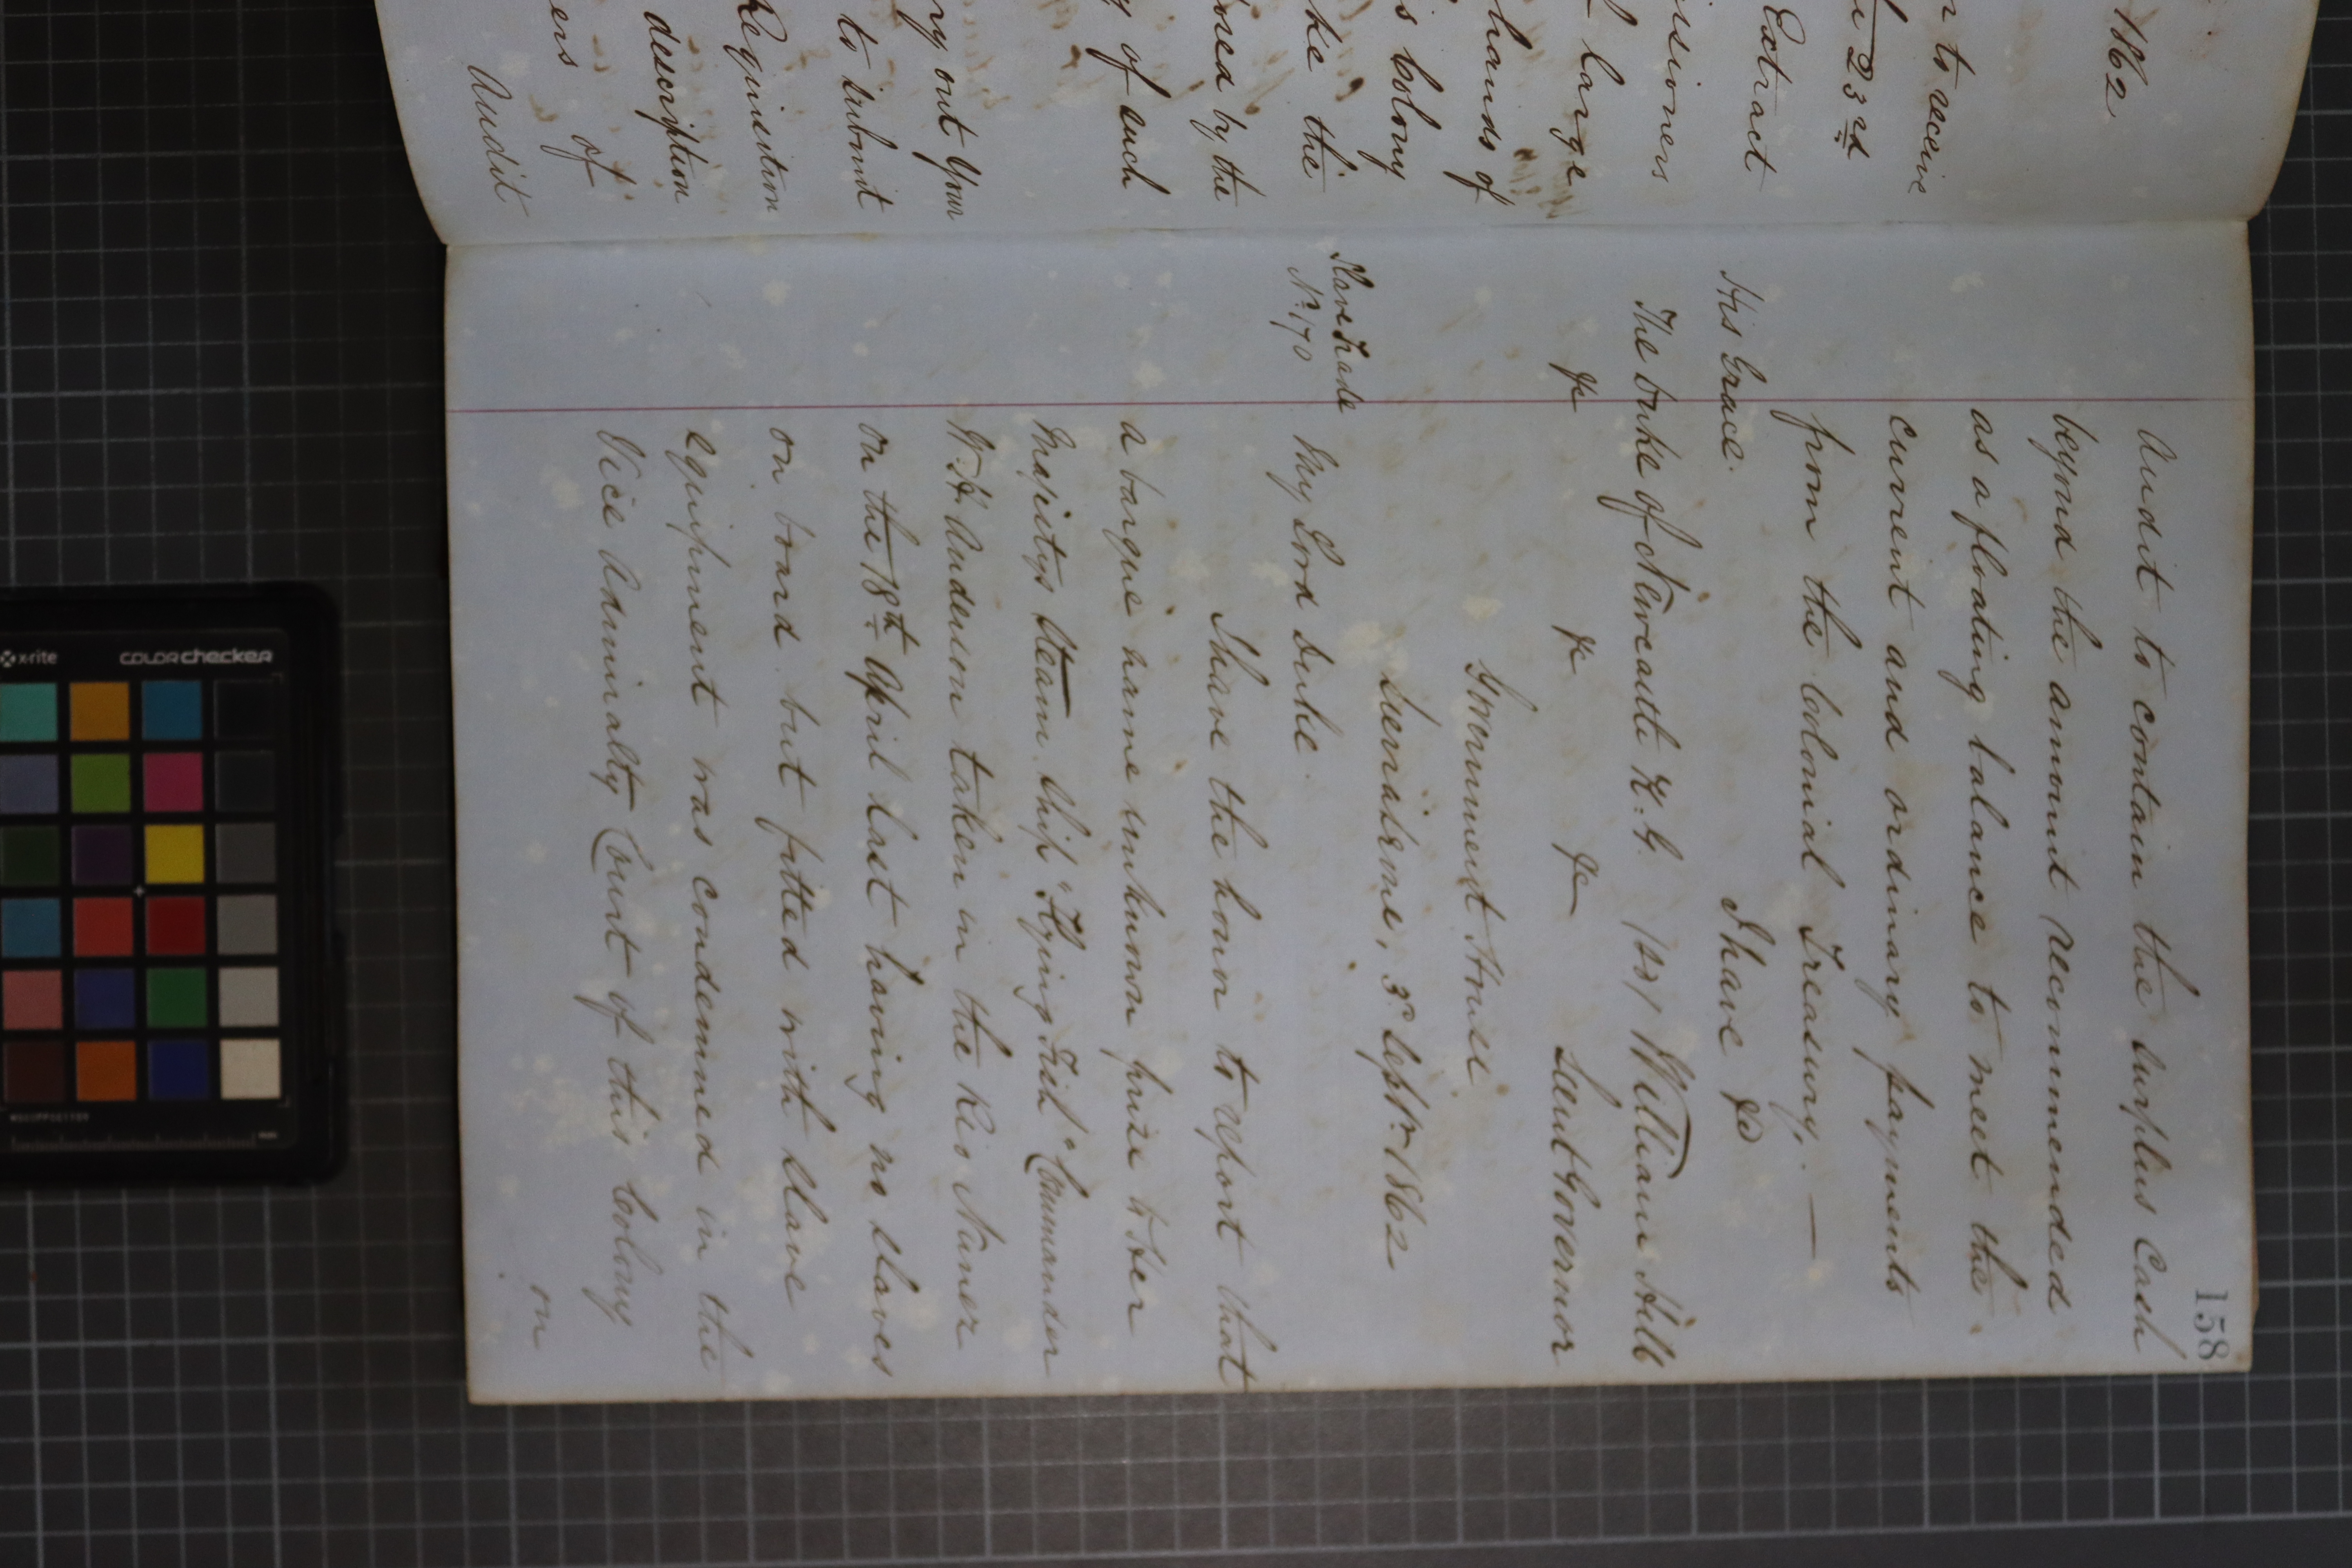 1862
to receive
23rd
Extract
issioners
large
hands of
s Colony
ke the
osed by the
y of such
ry out Your
to submit
Requisition
description
ers of
Audit
158
Audit to contain the surplus Cash
beyond the amount recommended
as a floating balance to meet the
current and ordinary payments
from the Colonial Treasury. —
I have &c
His Grace
The Duke of Newcastle K.G. (sd) William Hill
&c &c &c Lieut Governor
Government House
Sierra Leone, 3d Septr. 1862
Slave Trade
No. 170
My Lord Duke.
I have the honr to report that
a barque name unknown prize to Her
Majestys Steam Ship "Flying Fish" Commander
W. H. Anderson taken in the Rio Nunez
on the 18th April last having no slaves
on board but fitted with slave
equipment was condemned in the
Vice Admiralty Court of this Colony
on
x-rite
colorchecker